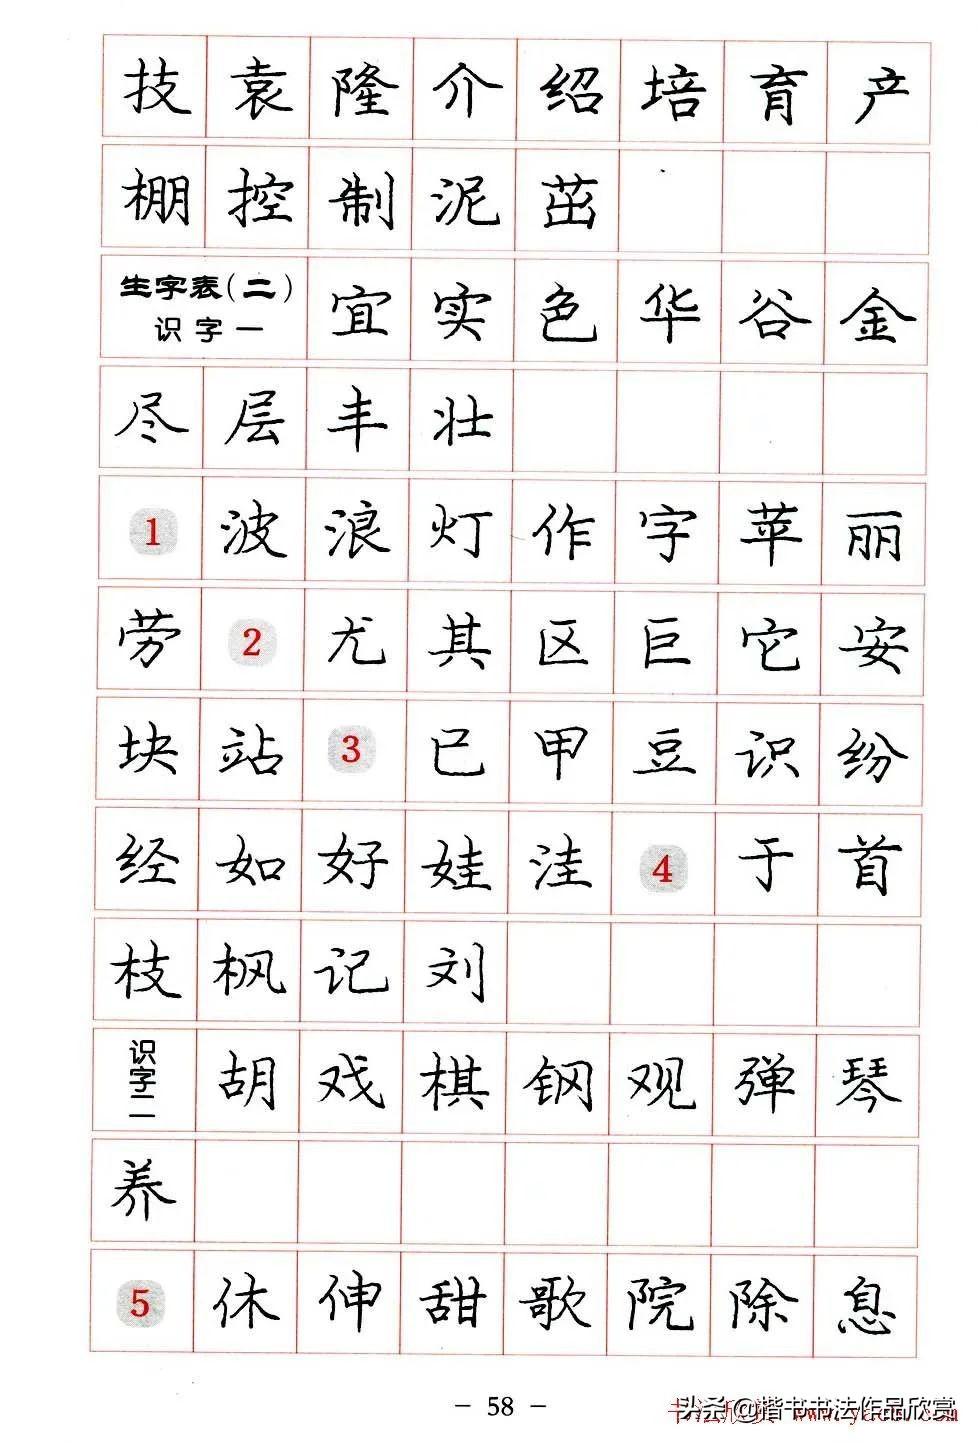 技袁隆介绍培育产
棚控制泥茁
生字表(二) 宜实色华谷金
识字一
尽层丰壮
1 波浪灯作字苹丽
劳 2 尤其区巨它安
块站 3 已甲豆识纷
经如好娃洼 4 于首
枝枫记刘
识字二 胡戏棋钢观弹琴
养
5 休伸甜歌院除息
- 58 -
头条@楷书书法作品欣赏